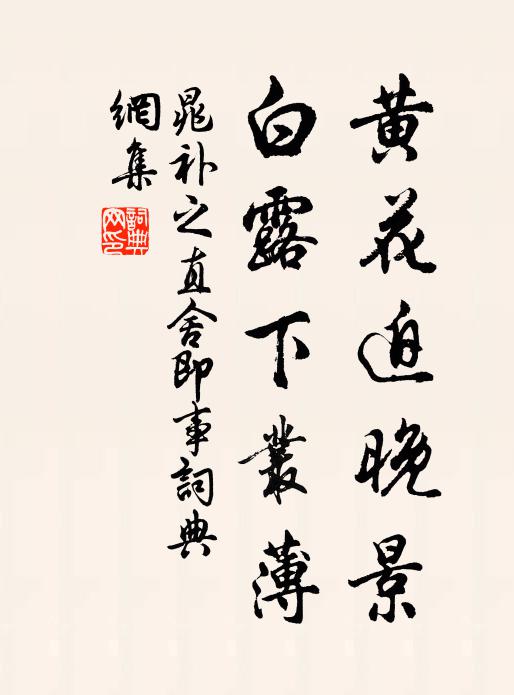 黃花迫晚景
白露下叢薄
晁補之直舍即事詞典
網集
詞典网印